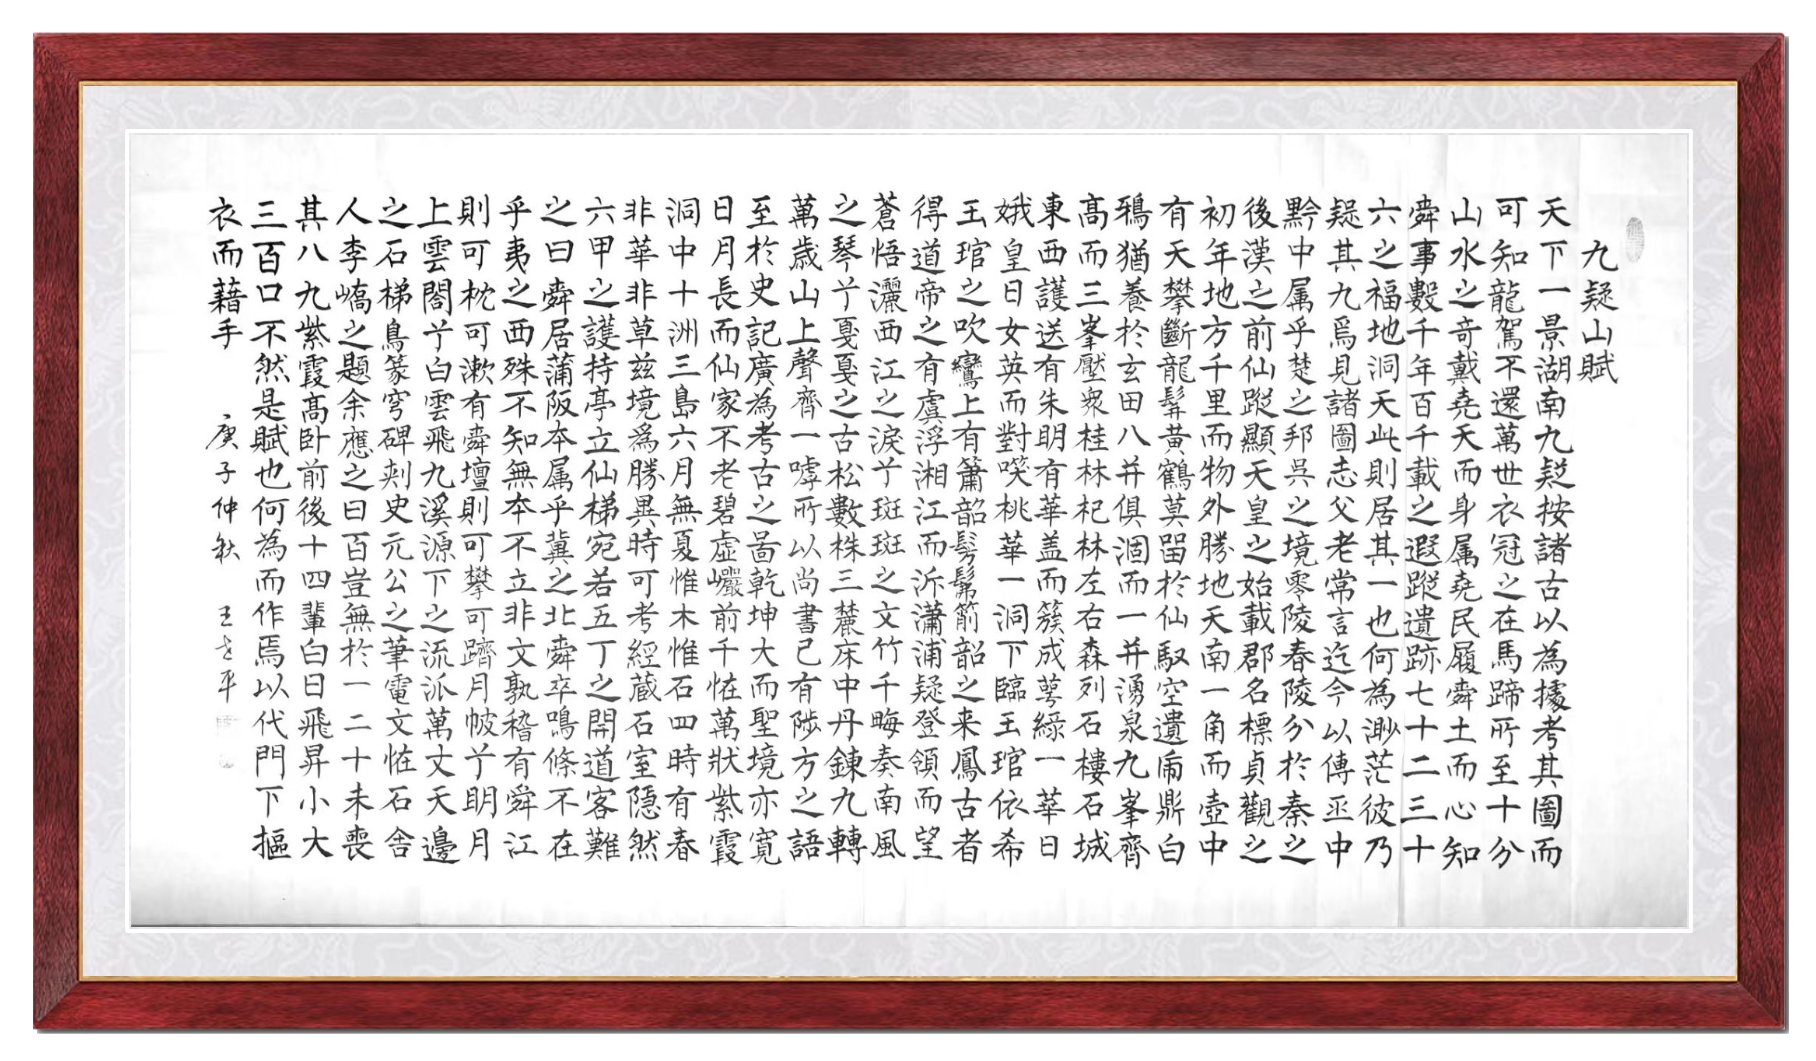 九疑山賦
天下一景湖南九疑按諸古以為據考其圖而
可知龍駕不還萬世衣冠之在馬蹄所至十分
山水之奇戴堯天而身属堯民履舜土而心知
舜事數千年百千載之遐蹤遺跡七十二三十
六之福地洞天此則居其一也何為渺茫彼乃
疑其九焉見諸圖志父老常言迄今以傳丞中
黔中属乎楚之邦吳之境零陵舂陵分於秦之
後漢之前仙蹤顯天皇之始載郡名標貞觀之
初年地方千里而物外勝地天南一角而壺中
有天攀斷龍髯黃鶴莫畱於仙馭空遺鼎白
鴉猶養於玄田八并俱涸而一井湧泉九峯齊
高而三峯壓衆桂林杞林左右森列石樓石城
東西護送有朱明有華盖而簇成萼綠一華日
娥皇日女英而對喫桃華一洞下臨王琯依希
王琯之吹鸞上有簫韶髣髴箾韶之来鳳古者
得道帝之有虞浮湘江而泝瀟浦疑登領而望
蒼悟灑西江之淚兮斑斑之文竹千晦奏南風
之琴兮戛戛之古松數株三麓床中丹鍊九轉
萬歲山上聲齊一嘑所以尚書已有陟方之語
至於史記廣為考古之啚乾坤大而聖境亦寛
日月長而仙家不老碧虛巗前千恠萬狀紫霞
洞中十洲三島六月無夏惟木惟石四時有春
非華非草兹境為勝異時可考經蔵石室隠然
六甲之護持亭立仙梯宛若五丁之開道客難
之曰舜居蒲阪本属乎冀之北舜卒鳴條不在
乎夷之西殊不知無本不立非文孰稽有舜江
則可枕可漱有舜壇則可攀可躋月帔兮明月
上雲閤兮白雲飛九溪源下之流派萬丈天邊
之石梯鳥篆穹碑刺史元公之筆電文恠石舍
人李嶠之題余應之曰百豈無於一二十未喪
其八九紫霞高卧前後十四輩白日飛昇小大
三百口不然是賦也何為而作焉以代門下摳
衣而藉手
庚子仲秋 王老平